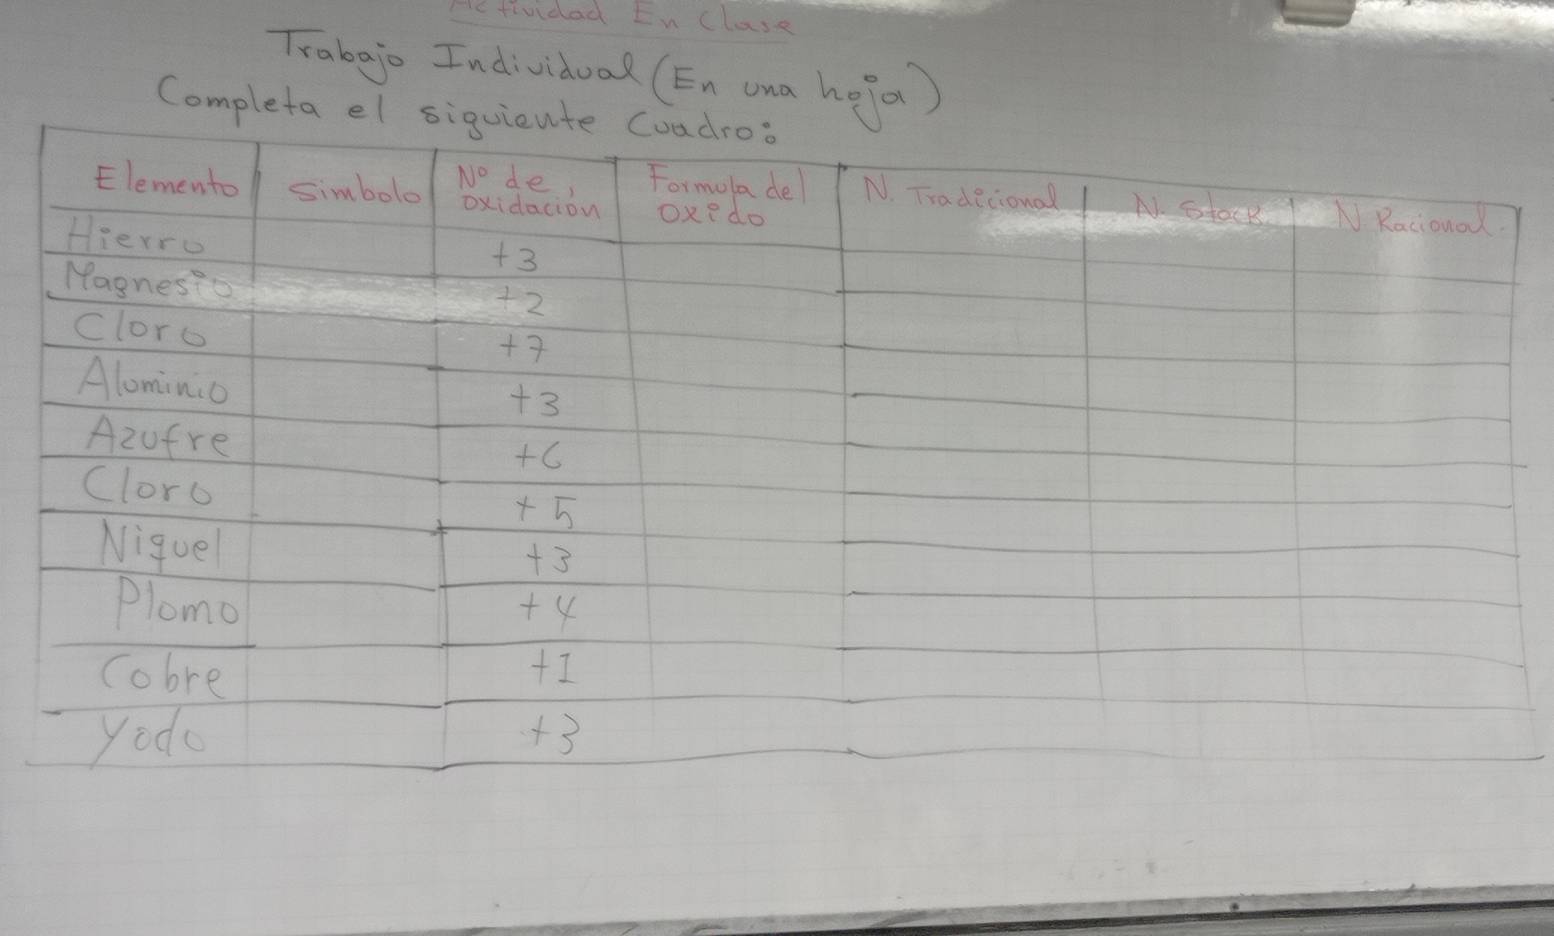 Actividad En Clase
Trabajo Individual (En una hoja)
Completa el siguiente Cuadro:
Elemento simbolo Nº de oxidación Formula del oxido N. Tradicional N. Stock N Racional.
Hierro +3
Magnesio +2
Cloro +7
Aluminio +3
Azufre +6
Cloro +5
Niquel +3
Plomo +4
Cobre +1
Yodo +3